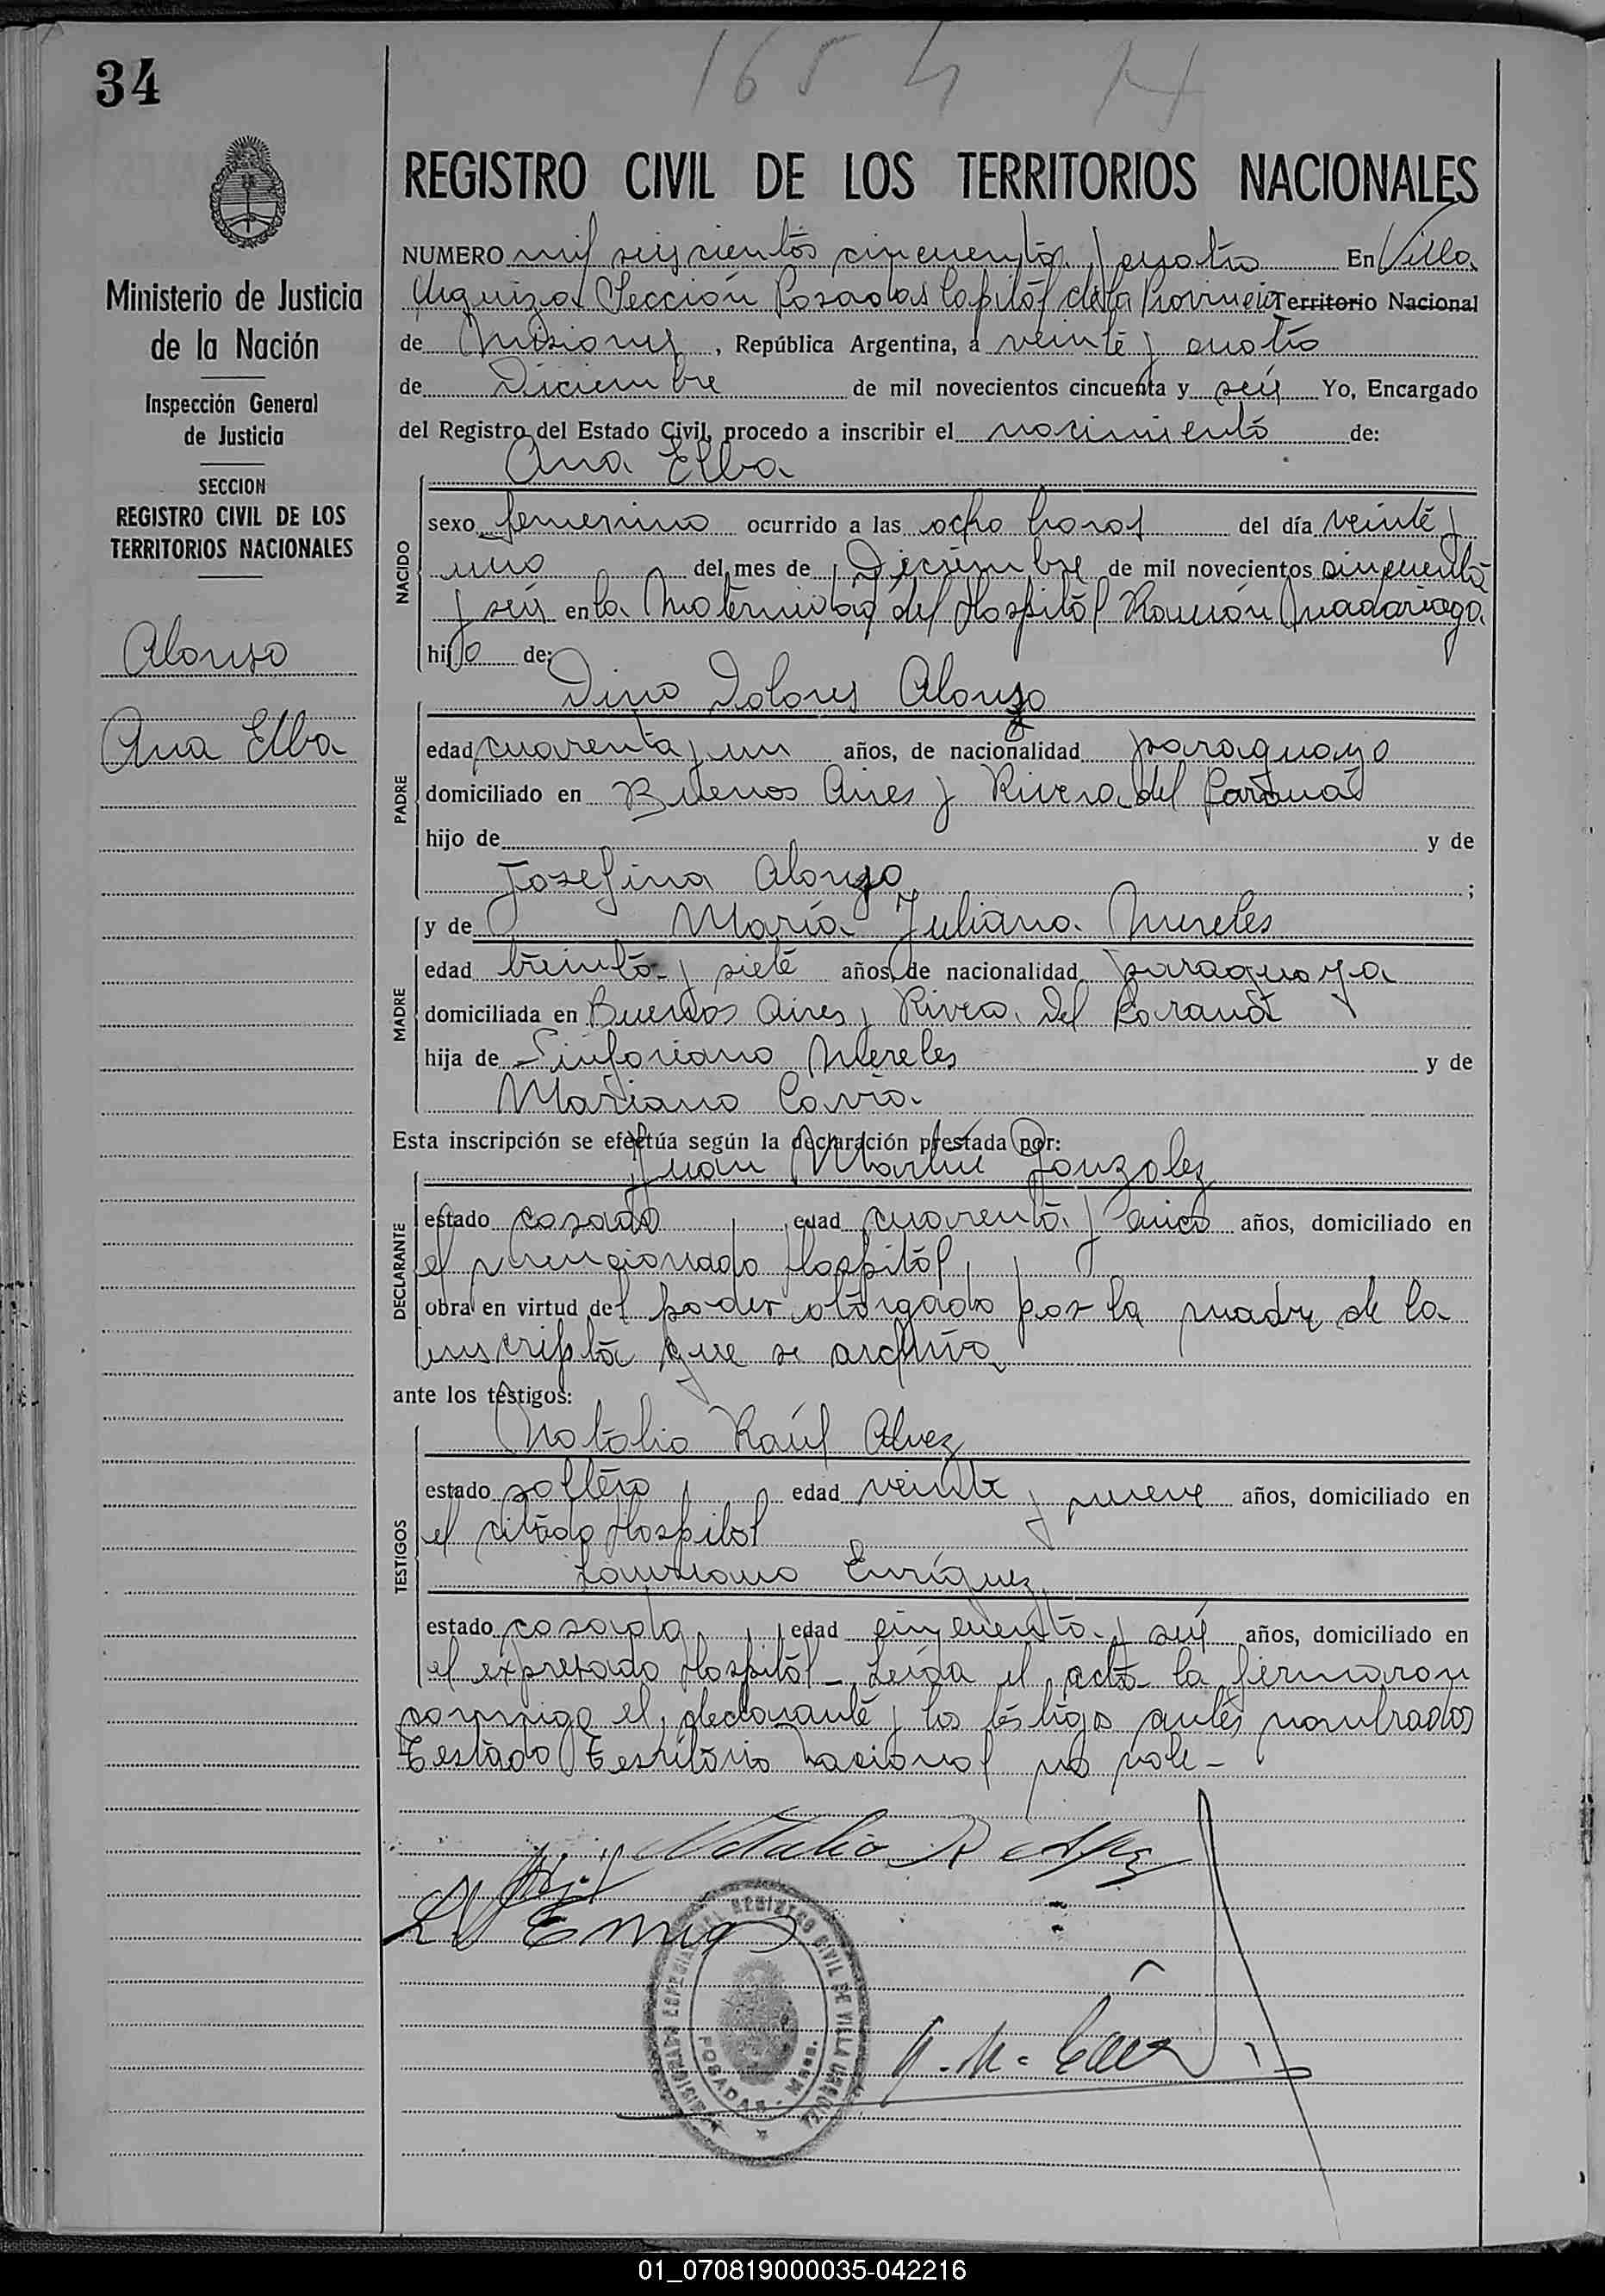 34
1654 H
REGISTRO CIVIL DE LOS TERRITORIOS NACIONALES
Ministerio de Justicia
de la Nación
Inspección General
de Justicia
SECCION
REGISTRO CIVIL DE LOS
TERRITORIOS NACIONALES
Alonso
Ana Elba
NUMERO mil seiscientos cincuenta y cuatro En Villa
Urquiza Sección Posadas Capital de la Provincia Territorio Nacional
de Misiones, República Argentina, a veinte y cuatro
de Diciembre de mil novecientos cincuenta y seis Yo, Encargado
del Registro del Estado Civil, procedo a inscribir el nacimiento de:
Ana Elba
NACIDO
sexo femenino ocurrido a las ocho horas del día veinte y
uno del mes de Diciembre de mil novecientos cincuenta
y seis en la Maternidad del Hospital Ramón Madariaga
hijo de:
Dino Dolores Alonso
PADRE
edad cuarenta y un años, de nacionalidad paraguayo
domiciliado en Buenos Aires y Rivera del Paraná
hijo de y de
Josefina Alonso ;
y de María Juliana Mereles
MADRE
edad treinta y siete años, de nacionalidad paraguaya
domiciliada en Buenos Aires y Rivera del Paraná
hija de Sinforiano Mereles y de
Mariana
Esta inscripción se efectúa según la declaración prestada por:
Juan Martin Gonzalez
DECLARANTE
estado casado edad cuarenta y cinco años, domiciliado en
el mencionado Hospital,
obra en virtud del poder otorgado por la madre de la
inscripta que se archiva
ante los testigos:
Natalio Raúl Alvez
TESTIGOS
estado soltero edad veinte y nueve años, domiciliado en
el citado Hospital
Laureano Enríquez
estado casado edad cincuenta y seis años, domiciliado en
el expresado Hospital - Leída el acta la firmaron
conmigo el declarante y los testigos antes nombrados
Testado Territorio Nacional no vale -
Natalio R Alvez
REGISTRO CIVIL DE VILLA URQUIZA
POSADAS - Mnes.
01_070819000035-042216